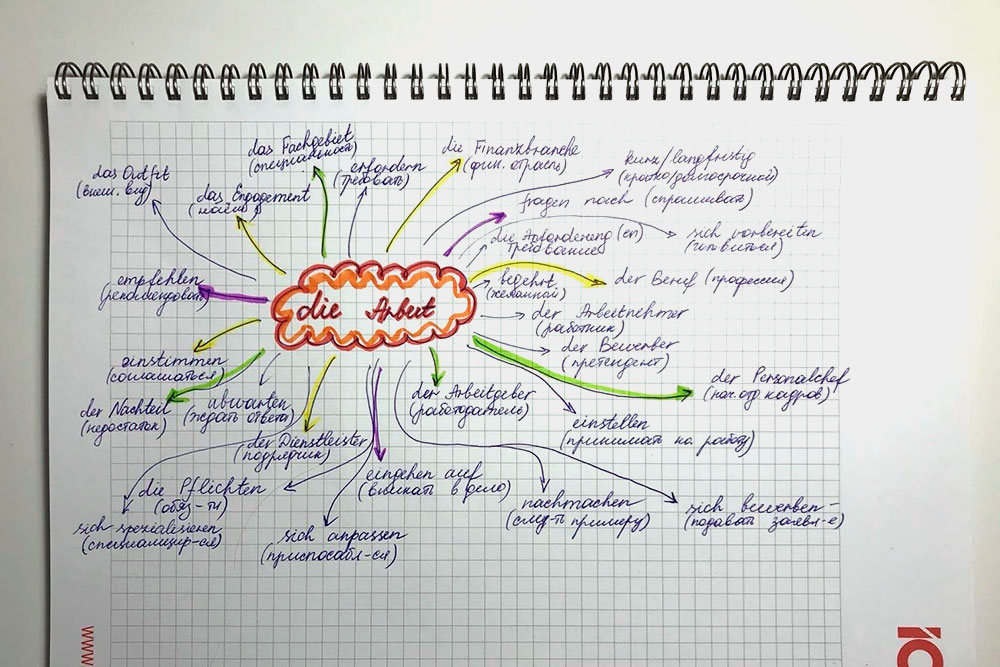 das Fachgebiet
(специальность)
die Finanzbranche
(фин. отрасль)
erfordern
(требовать)
kurz/langfristig
(кратко/долгосрочной)
das Outfit
(внеш. вид)
das Engagement
fragen nach (спрашивать)
die Anforderung (en)
требование
sich vorbereiten
(готовиться)
empfehlen
(рекомендовать)
begehrt
(желанной)
der Beruf (профессия)
die Arbeit
der Arbeitnehmer
(работник)
der Bewerber
(претендент)
einstimmen
(соглашаться)
der Personalchef
(нач. отд кадров)
der Nachteil
(недостаток)
abwarten
(ждать ответа)
der Arbeitgeber
(работодатель)
einstellen
(принимать на работу)
der Dienstleister
(подрядчик)
eingehen auf
(вникать в дело)
die Pflichten
(обяз-ти)
nachmachen
(след-ть примеру)
sich bewerben-
(подавать заявл-е)
sich spezialisieren
(специализир-ся)
sich anpassen
(приспосабл-ся)
www